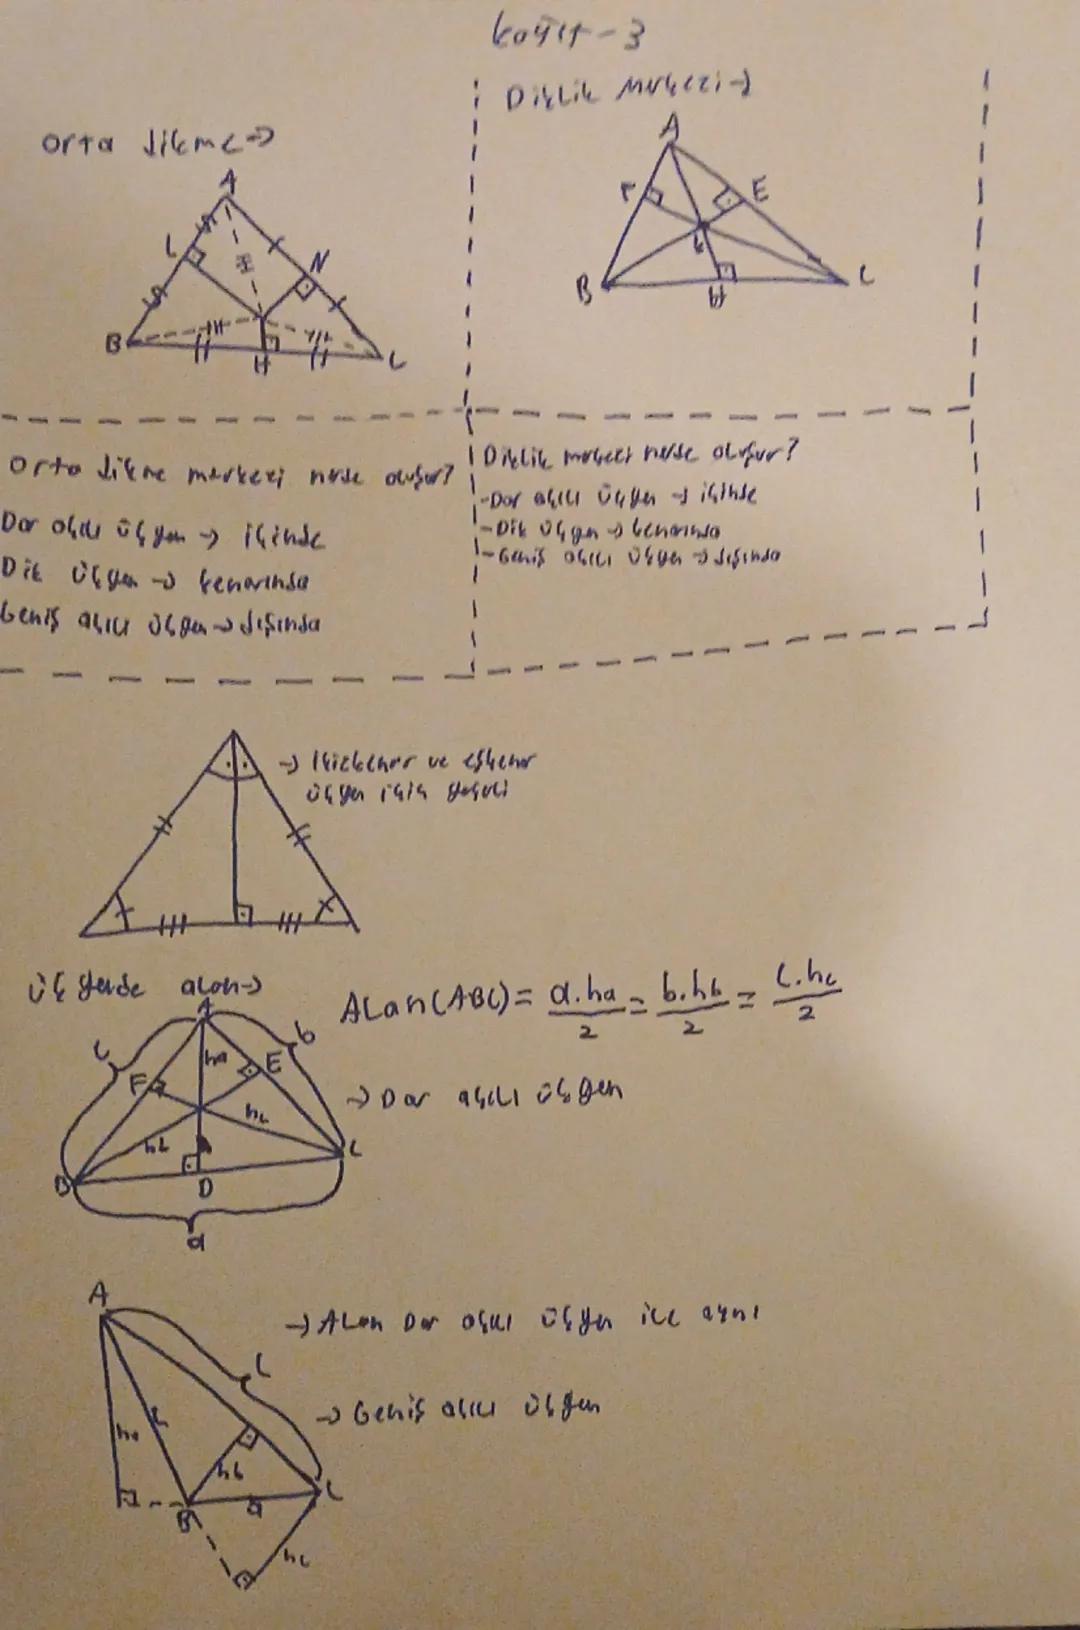 Kağıt-3
Orta dikme→
A
L
N
B
H
C
Diklik Merkezi→
A
F
E
B
H
C
Orta dikme merkezi nerde oluşur?
Dar açılı üçgen → içinde
Dik üçgen → kenarında
Geniş açılı üçgen → dışında
Diklik merkezi nerde oluşur?
-Dar açılı üçgen → içinde
-Dik üçgen → kenarında
-Geniş açılı üçgen → dışında
→ İkizkenar ve eşkenar
üçgen için geçerli
Üçgende alan→
Alan(ABC) = a.ha/2 = b.hb/2 = c.hc/2
A
c
b
ha
F
E
hc
hb
B
D
C
a
→ Dar açılı üçgen
A
→ Alan Dar açılı üçgen ile aynı
→ Geniş açılı üçgen
ha
hb
B
a
C
hc